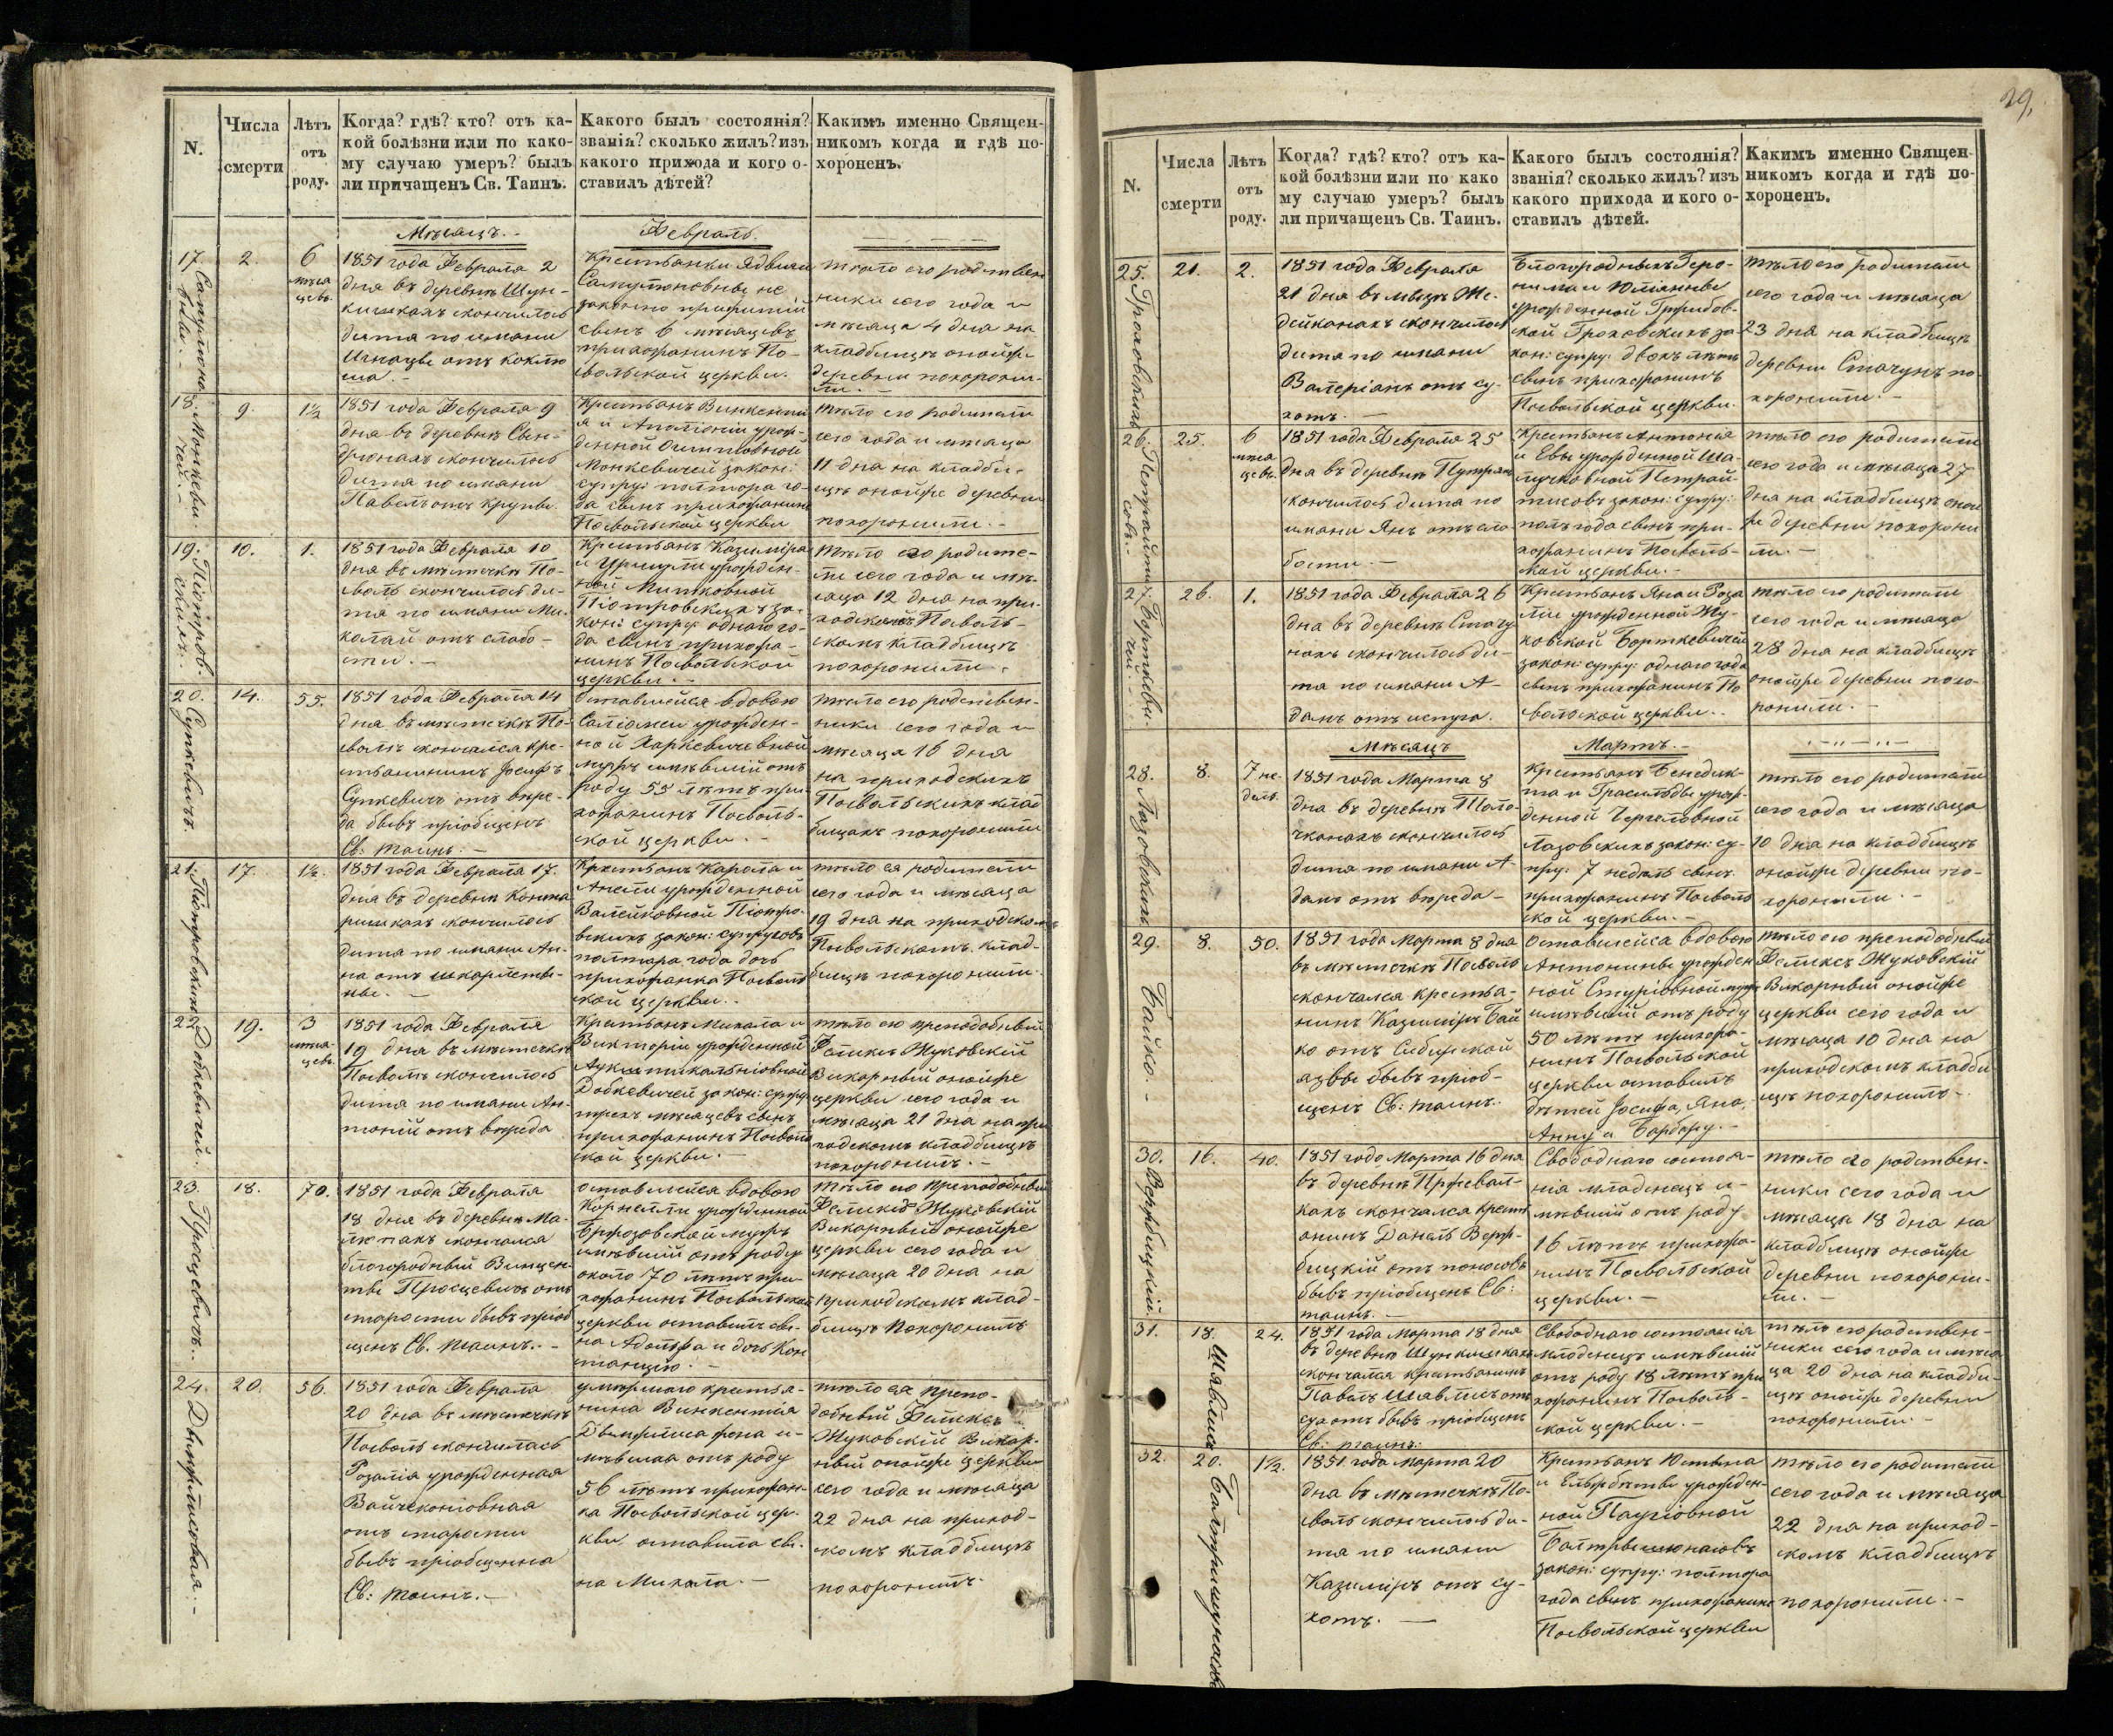 N.
Числа
смерти
Лѣтъ
отъ
роду.
Когда? гдѣ? кто? отъ ка-
кой болѣзни или по како-
му случаю умеръ? былъ
ли причащенъ Св. Таинъ.
Какого былъ состоянія?
званія? сколько жилъ? изъ
какого прихода и кого о-
ставилъ дѣтей?
Какимъ именно Священ-
никомъ когда и гдѣ по-
хороненъ.
Мѣсяцъ.-
Февраль.
17.
2.
6
мѣся
цевъ.
1851 года Февраля 2
дня въ деревнѣ Шун-
кишкахъ скончилось
дитя по имяни
Игнацы отъ коклю
ша.-
Крестьянки Ядвиги
не
законно прижитый
сынъ 6 мѣсяцевъ
прихожанинъ По-
свольской церкви.
тѣло его родствен
ники сего года и
мѣсяца 4 дня на
кладбищѣ онойже
деревни похорони-
ли.-
18.
Монкеви-
чей.-
9.
1½
1851 года Февраля 9
дня въ деревнѣ
скончилось
дитя по имяни
Павелъ отъ крупы.
Крестьянъ Викенті
я и Аполоніи урож-
денной
Монкевичей закон:
супру: полтора го-
да сынъ прихожанинъ
Посвольской церкви
тѣло его родители
сего года и мѣсяца
11 дня на кладби-
щѣ онойже деревни
похоронили.-
19.
Піотров-
скихъ.-
10.
1.
1851 года Февраля 10
дня въ мѣстечкѣ По-
сволѣ скончилось ди-
тя по имяни Ми-
колай отъ слабо-
сти.-
Крестьянъ Казимира
и Уршули урожден-
ной Митковной
Піотровскихъ за-
кон: супру: одного го-
да сынъ прихожа-
нинъ Посвольской
церкви.-
тѣло его родите-
ли сего года и мѣ-
сяца 12 дня на при-
ходскомъ Посволь-
скомъ кладбищѣ
похоронили.
20.
Сункевичъ.
14.
55.
1851 года Февраля 14
дня въ мѣстечкѣ По-
сволѣ скончался кре-
стьянинъ Іосифъ
Сункевичъ отъ вере-
да бывъ пріобщенъ
Св: таинъ.-
оставшейся вдовою
Саломеи урожден-
ной Харкевичевной
мужъ имѣвшій отъ
роду 55 лѣтъ при-
хожанинъ Посволь-
ской церкви.-
тѣло его родствен-
ники сего года и
мѣсяца 16 дня
на приходскихъ
Посвольскихъ клад
бищахъ похоронили
21.
Піотровскихъ
17.
1½.
1851 года Февраля 17.
дня въ деревнѣ
скончилось
дитя по имяни Ан-
на отъ
Крестьянъ Кароля и
Анели урожденной
Валейковной Піотро-
вскихъ закон: супруговъ
полтора года дочь
прихожанка Посволь
ской церкви.
тѣло ея родители
сего года и мѣсяца
19 дня на приходскомъ
Посвольскомъ клад-
бищѣ похоронили.
22.
Добкевичей.
19.
3
мѣся-
цевъ.
1851 года Февраля
19 дня въ мѣстечкѣ
Посволѣ скончилось
дитя по имяни Ан-
тоній отъ вереда
Крестьянъ Михала и
Викторіи урожденной
Добкевичей закон: супру:
трехъ мѣсяцевъ сынъ
прихожанинъ Посволь
ской церкви.-
тѣло его преподобный
Феликсъ Жуковскій
Викарный онойже
церкви сего года и
мѣсяца 21 дня на при
ходскомъ кладбищѣ
похоронилъ.-
23.
18.
70.
1851 года Февраля
18 дня въ деревнѣ Ма-
скончался
благородный Винцен-
ты отъ
старости бывъ пріоб
щенъ Св. таинъ.-
оставшейся вдовою
Корнеліи урожденной
Бржозовской мужъ
имѣвшій отъ роду
около 70 лѣтъ при-
хожанинъ Посвольской
церкви оставилъ сы-
на Адольфа и дочь Кон
станцію.-
тѣло его преподобный
Феликсъ Жуковскій
Викарный онойже
церкви сего года и
мѣсяца 20 дня на
приходскомъ клад-
бищѣ похоронилъ
24.
20.
56.
1851 года Февраля
20 дня въ мѣстечкѣ
Посволѣ скончилась
Розалія урожденная
отъ старости
бывъ пріобщенна
Св: таинъ.-
умершаго крестья-
нина Викентія
жена и-
мѣвшая отъ роду
56 лѣтъ прихожан-
ка Посвольской цер-
кви оставила сы-
на Михала.-
тѣло ея препо-
добный Феликсъ
Жуковскій Викар-
ный онойже церкви
сего года и мѣсяца
22 дня на приход-
скомъ кладбищѣ
похоронилъ.
29.
N.
Числа
смерти
Лѣтъ
отъ
роду.
Когда? гдѣ? кто? отъ ка-
кой болѣзни или по како
му случаю умеръ? былъ
ли причащенъ Св. Таинъ.
Какого былъ состоянія?
званія? сколько жилъ? изъ
какого прихода и кого о-
ставилъ дѣтей.
Какимъ именно Священ-
никомъ когда и гдѣ по-
хороненъ.
25.
Гроховскихъ
21.
2.
1851 года Февраля
21 дня въ мызѣ Же-
дейканахъ скончилось
дитя по имяни
Валеріанъ отъ су-
хотъ.-
Благородныхъ Геро-
нима и Юліанны
урожденной Гржибов-
ской Гроховскихъ за-
кон: супру: двохъ лѣтъ
сынъ прихожанинъ
Посвольской церкви.
тѣло его родители
сего года и мѣсяца
23 дня на кладбищѣ
деревни Стачунъ по-
хоронили.-
26.
25.
6
мѣся
цевъ.
1851 года Февраля 25
дня въ деревнѣ
скончилось дитя по
имяни Янъ отъ сла-
бости.-
Крестьянъ Антонія
и Евы урожденной Ша-
закон: супру:
полъ года сынъ при-
хожанинъ Посволь-
ской церкви.-
тѣло его родители
сего года и мѣсяца 27
дня на кладбищѣ оной
же деревни похорони
ли.-
Борткеви-
чей.-
26.
1.
1851 года Февраля 26
дня въ деревнѣ Стачу
нахъ скончилось ди-
тя по имяни А-
дамъ отъ испуга.
Крестьянъ Яна и Роза
ліи урожденной Жу-
ковской Борткевичей
закон: супру: одного года
сынъ прихожанинъ По
свольской церкви.-
тѣло его родители
сего года и мѣсяца
28 дня на кладбищѣ
онойже деревни похо-
ронили.-
Мѣсяцъ
Мартъ.-
28.
Лазовскихъ
8.
7 не-
дѣль.
1851 года Марта 8
дня въ деревнѣ Поло-
чканахъ скончилось
дитя по имяни А-
дамъ отъ вереда-
Крестьянъ Бенедик-
та и Грасильды урож-
денной
Лазовскихъ закон: су-
пру: 7 недѣль сынъ
прихожанинъ Посволь
ской церкви.-
тѣло его родители
сего года и мѣсяца
10 дня на кладбищѣ
онойже деревни по-
хоронили.-
29.
Бойко.-
8.
50.
1851 года Марта 8 дня
въ мѣстечкѣ Посволѣ
скончался крестья-
нинъ Казимиръ Бой
ко отъ Сибирской
язвы бывъ пріоб-
щенъ Св: таинъ.
Оставшейся вдовою
Антонины урожден
ной мужъ
имѣвшій отъ роду
50 лѣтъ прихожа-
нинъ Посвольской
церкви оставилъ
дѣтей Іосифа, Яна,
Анну и Барбару.-
тѣло его преподобный
Феликсъ Жуковскій
Викарный онойже
церкви сего года и
мѣсяца 10 дня на
приходскомъ кладби
щѣ похоронилъ-
30.
Вержбицкій.
16.
40.
1851 года Марта 16 дня
въ деревнѣ
скончался кресть
янинъ Даніелъ Верж-
бицкій отъ поносовъ
бывъ пріобщенъ Св:
таинъ.-
Свободнаго состоя-
нія младенецъ и-
мѣвшій отъ роду
16 лѣтъ прихожа-
нинъ Посвольской
церкви.-
тѣло его родствен-
ники сего года и
мѣсяца 18 дня на
кладбищѣ онойже
деревни похорони-
ли.-
31.
18.
24.
1851 года Марта 18 дня
въ деревнѣ Шункишкахъ
скончался крестьянинъ
Павелъ отъ
сухотъ бывъ пріобщенъ
Св: таинъ.
Свободнаго состоянія
младенецъ имѣвшій
отъ роду 18 лѣтъ при
хожанинъ Посволь-
ской церкви.-
тѣло его родствен-
ники сего года и мѣся
ца 20 дня на кладби-
щѣ онойже деревни
похоронили.-
32.
20.
1½.
1851 года Марта 20
дня въ мѣстечкѣ По-
сволѣ скончилось ди-
тя по имяни
Казимиръ отъ су-
хотъ.-
Крестьянъ Юстина
и Ельжбеты урожден-
ной
закон: супру: полтора
года сынъ прихожанинъ
Посвольской церкви
тѣло его родители
сего года и мѣсяца
22 дня на приход-
скомъ кладбищѣ
похоронили.-